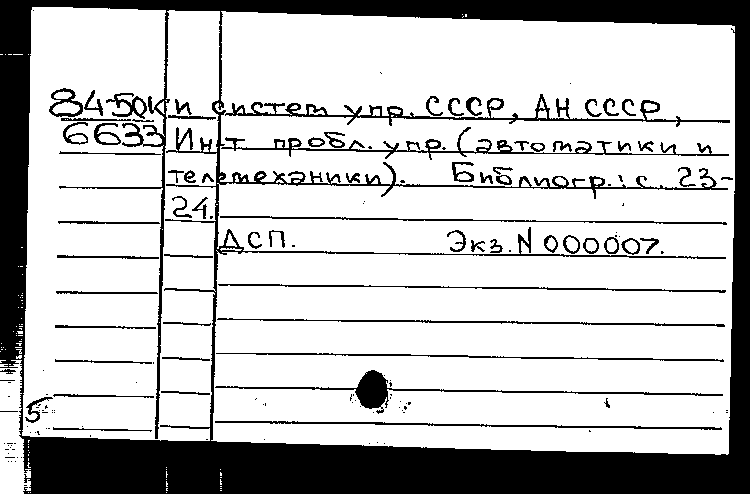 84-50к и систем упр. СССР, АН СССР,
6633 Ин-т пробл. упр. (автоматики и
телемеханики). Библиогр.: с. 23-
24.
ДСП. Экз. N 000007.
5